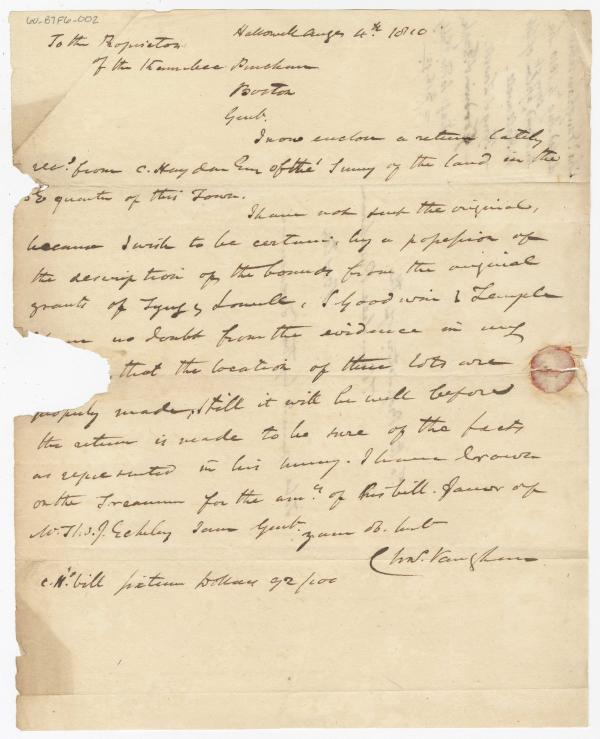 60-B7F6-002
Hallowell Augt 4th 1810
To the Proprietors
of the Kennebec Purchase
Boston
Gent.
I now enclose a return lately
recd. from C. Haydon Esqr of the Survey of the land in the
SE quarter of this Town.
I have not sent the original,
because I wish to be certain, by a possession of
the description of the bounds from the original
grants of Tyng & Lowell, S Goodwin & Temple
have no doubt from the evidence in my
that the location of these lots are
properly made, still it will be well before
the return is made to be sure of the facts
as represented in his survey. I have drawn
on the Treasurer for the amt. of his bill. favor of
Mr. Ths. J. Eckley I am Gent.
your ob. Sert
Chas. Vaughan
C. Hs. bill sixteen Dollars 92/100